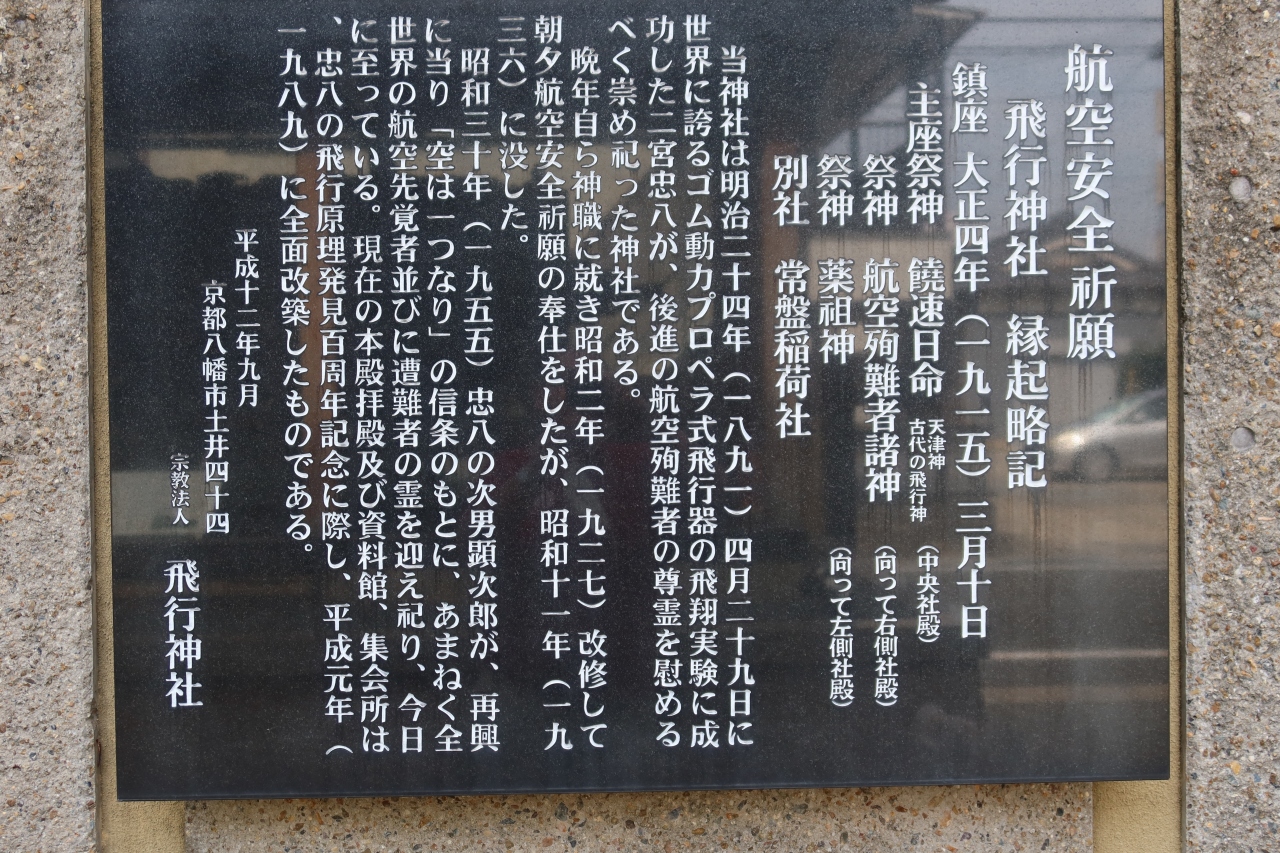 航空安全祈願
飛行神社 縁起略記
鎮座 大正四年（一九一五）三月十日
主座祭神 饒速日命 天津神 古代の飛行神 （中央社殿）
祭神 航空殉難者諸神 （向って右側社殿）
祭神 薬祖神 （向って左側社殿）
別社 常盤稲荷社
当神社は明治二十四年（一八九一）四月二十九日に
世界に誇るゴム動力プロペラ式飛行器の飛翔実験に成
功した二宮忠八が、後進の航空殉難者の尊霊を慰める
べく崇め祀った神社である。
晩年自ら神職に就き昭和二年（一九二七）改修して
朝夕航空安全祈願の奉仕をしたが、昭和十一年（一九
三六）に没した。
昭和三十年（一九五五）忠八の次男顕次郎が、再興
に当り「空は一つなり」の信条のもとに、あまねく全
世界の航空先覚者並びに遭難者の霊を迎え祀り、今日
に至っている。現在の本殿拝殿及び資料館、集会所は
、忠八の飛行原理発見百周年記念に際し、平成元年（
一九八九）に全面改築したものである。
平成十二年九月
京都八幡市土井四十四
宗教法人 飛行神社